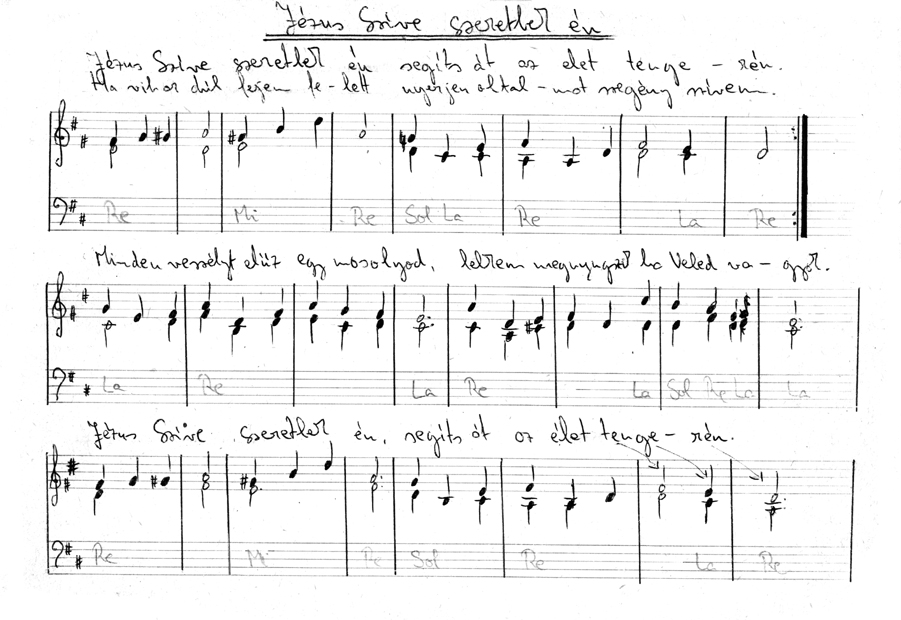 Jézus Szive szeretlek én
Jézus Szive szeretlek én segits át az élet tenge - rén.
Ha vihar dúl fejem fe - lett nyerjen oltal - mat szegény szivem.
Re Mi Re Sol La Re La Re
Minden veszélyt elűz egy mosolyod, lelkem megnyugszik ha Veled va - gyok.
La Re La Re La Sol Re La La
Jézus Szive szeretlek én, segits át az élet tenge - rén.
Re Mi Re Sol Re La Re